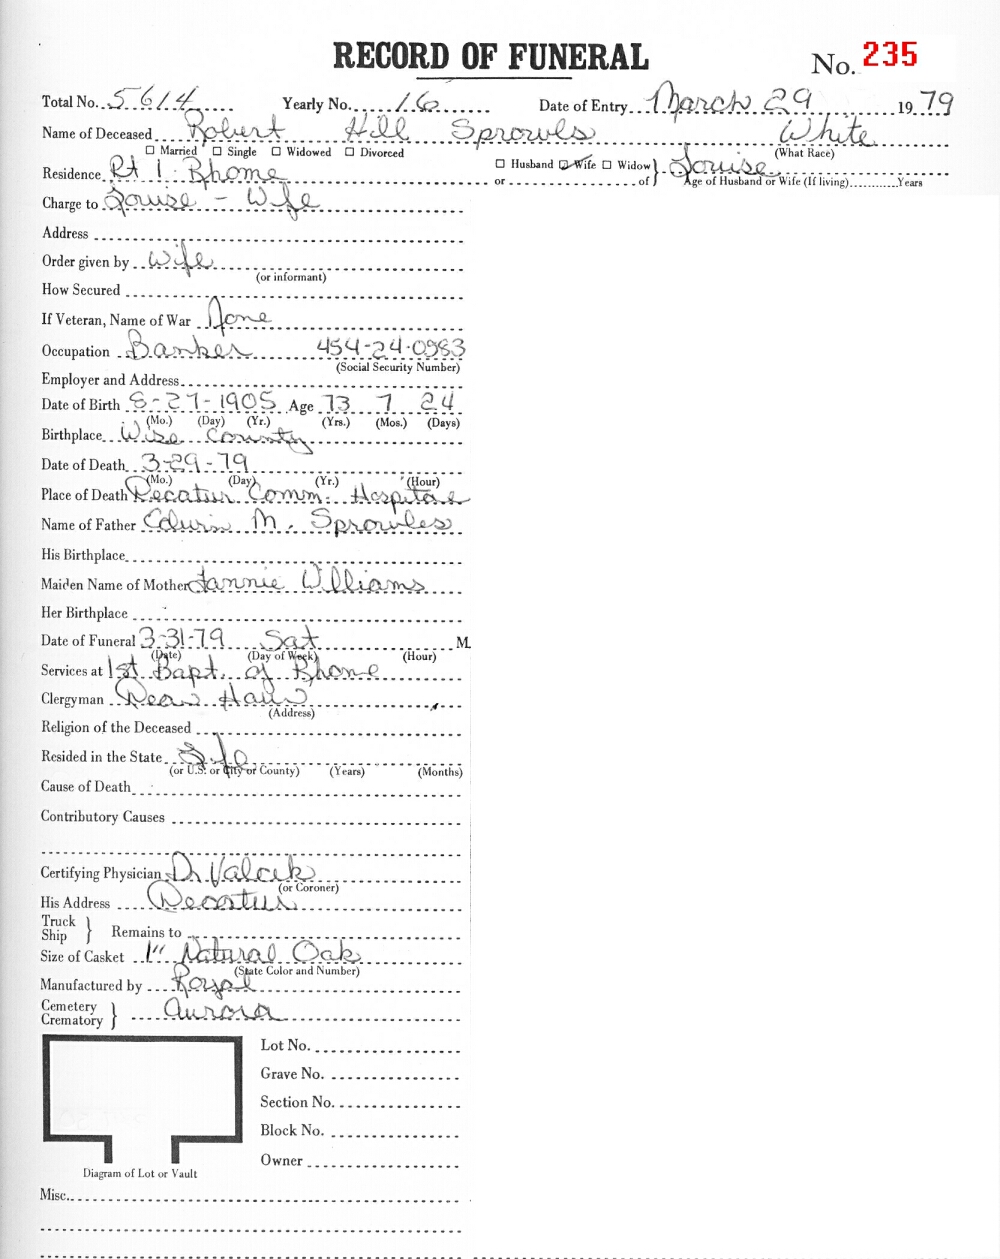 RECORD OF FUNERAL
No. 235
Total No. 5614 Yearly No. 16 Date of Entry March 29 1979
Name of Deceased Robert Hill Sprowls White
☐ Married ☐ Single ☐ Widowed ☐ Divorced (What Race)
Residence Rt 1 Rhome ☐ Husband ☑ Wife ☐ Widow } Louise
or of } Age of Husband or Wife (If living) Years
Charge to Louise - Wife
Address
Order given by Wife
(or informant)
How Secured
If Veteran, Name of War None
Occupation Banker 454-24-0983
(Social Security Number)
Employer and Address
Date of Birth 8-27-1905 Age 73 7 24
(Mo.) (Day) (Yr.) (Yrs.) (Mos.) (Days)
Birthplace Wise County
Date of Death 3-29-79
(Mo.) (Day) (Yr.) (Hour)
Place of Death Decatur Comm. Hospital
Name of Father Edwin M. Sprowles
His Birthplace
Maiden Name of Mother Fannie Williams
Her Birthplace
Date of Funeral 3-31-79 Sat M.
(Date) (Day of Week) (Hour)
Services at 1st Bapt. of Rhome
Clergyman Dean
(Address)
Religion of the Deceased
Resided in the State Life
(or U.S. or City or County) (Years) (Months)
Cause of Death
Contributory Causes
Certifying Physician Dr Valcik
(or Coroner)
His Address Decatur
Truck
Ship } Remains to
Size of Casket 1" Natural Oak
(State Color and Number)
Manufactured by Royal
Cemetery
Crematory } Aurora
Lot No.
Grave No.
Section No.
Block No.
Owner
Diagram of Lot or Vault
Misc.